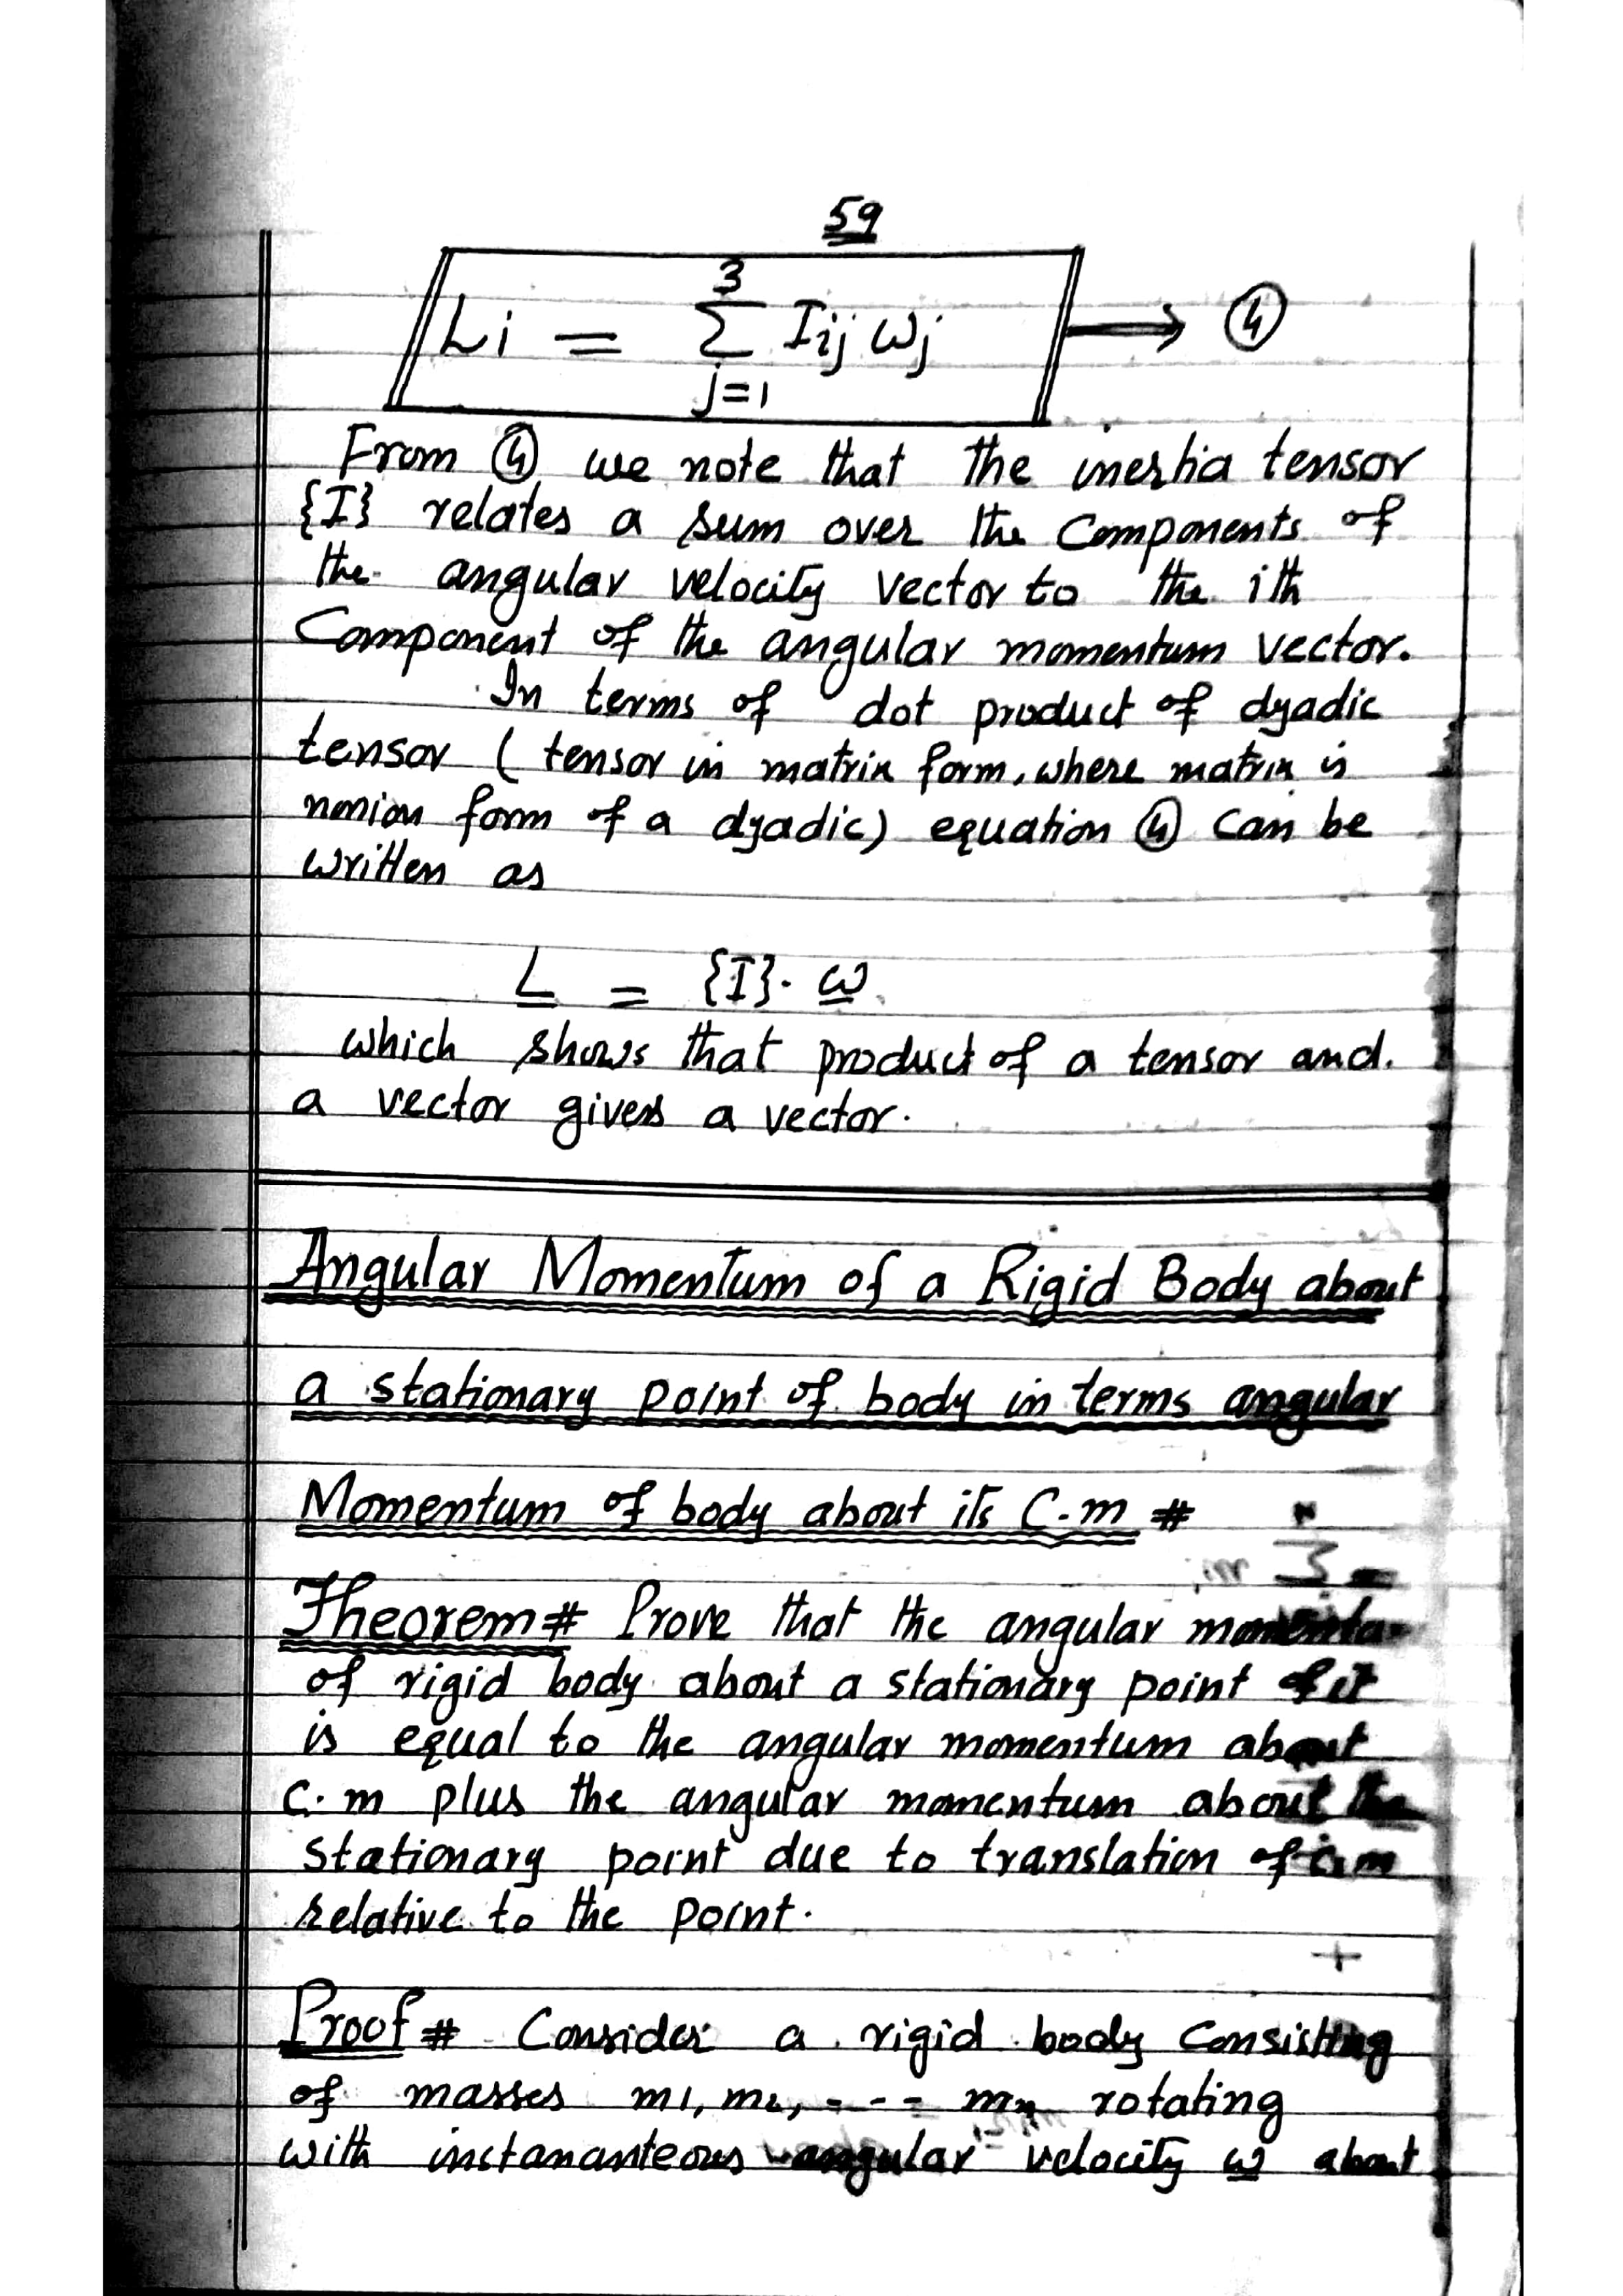 59
Li = 3 Σ j=1 Iij ωj → ④
From ④ we note that the inertia tensor
{I} relates a sum over the Components of
the angular velocity vector to the ith
Component of the angular momentum vector.
In terms of dot product of dyadic
tensor ( tensor in matrix form, where matrix is
nonion form of a dyadic) equation ④ can be
written as
L = {I}. ω
which shows that product of a tensor and.
a vector gives a vector.
Angular Momentum of a Rigid Body about
a stationary point of body in terms angular
Momentum of body about its C.m #
Theorem # Prove that the angular
of rigid body about a stationary point of it
is equal to the angular momentum about
C.m plus the angular momentum about the
Stationary point due to translation of c.m
relative to the point.
Proof # Consider a rigid body Consisting
of masses m1, m2, - - - mn rotating
with instananteous angular velocity ω about